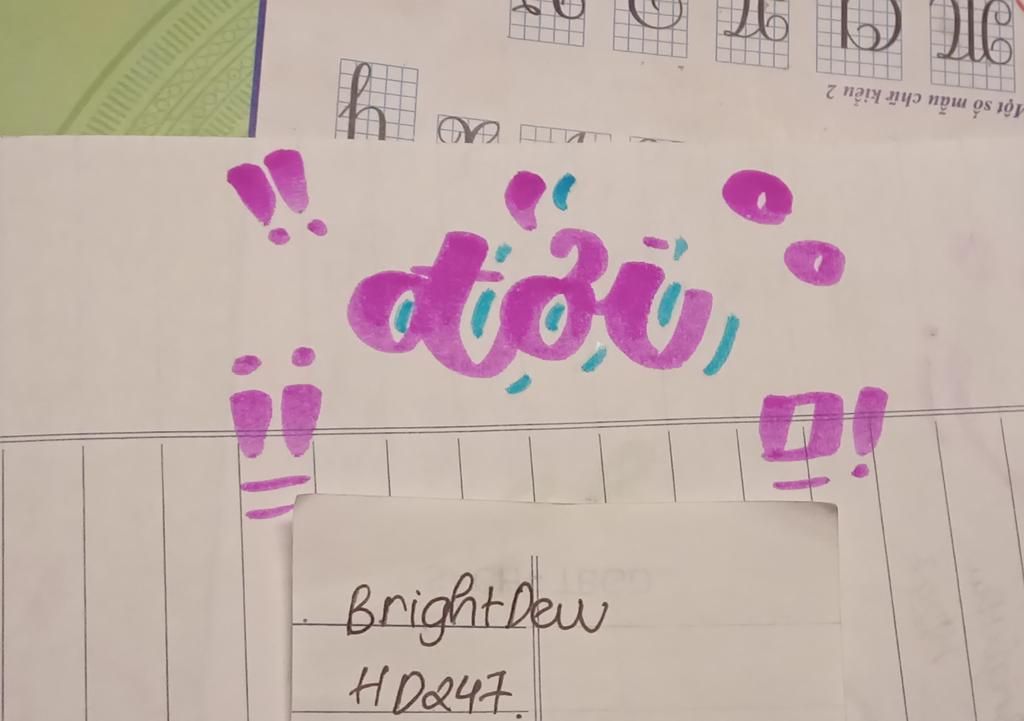 Một số mẫu chữ kiểu 2
đời
BrightDew
HD247.